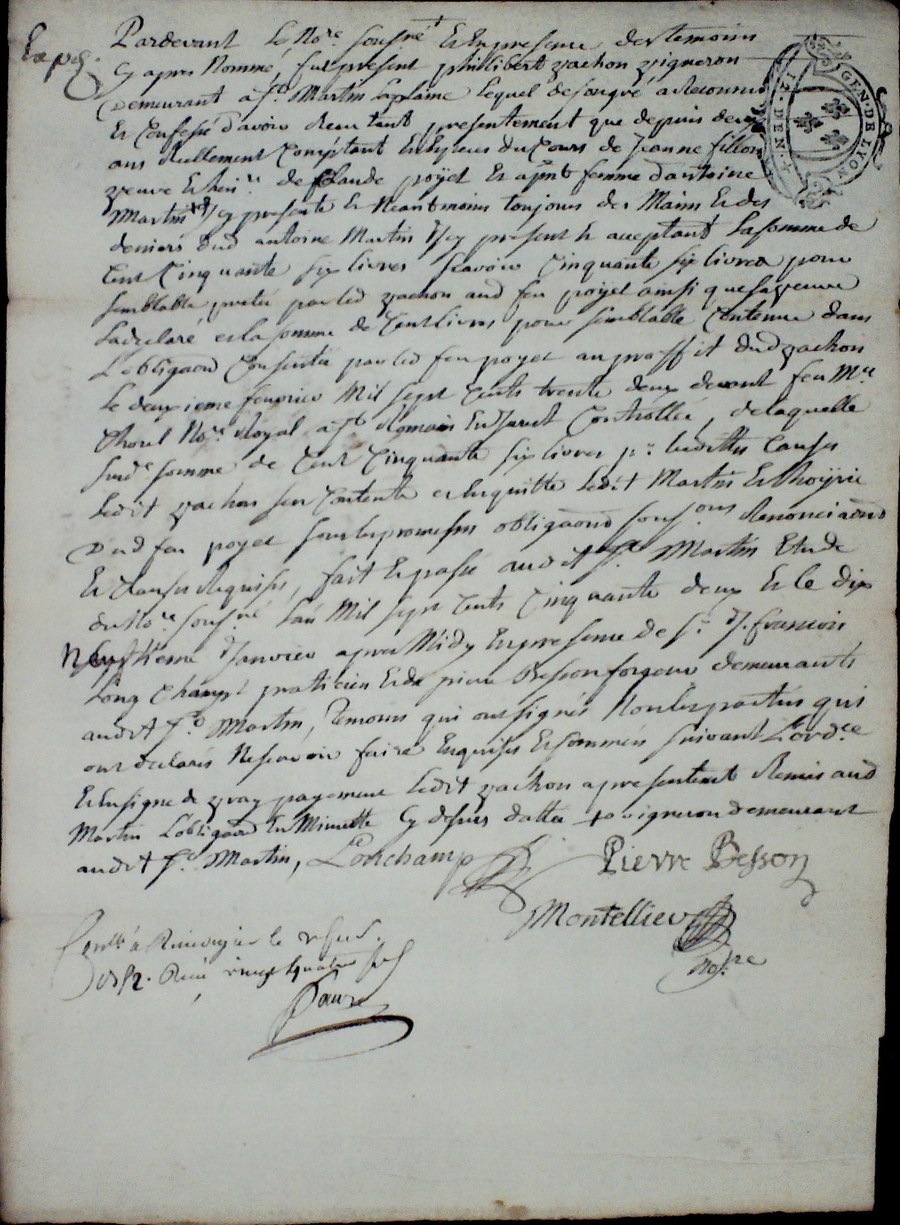 Expé.
Pardevant Le No.re Sousné Et En presence des temoins
Cy apres Nommé, fut present phillibert Zachon Vigneron
Demeurant a St. Martin Laplaine Lequel de son gré a Reconnu
Et Confessé d'avoir Receu tant presentement que depuis deux
ans Reellement Comptant Et Especes du Cours de Jeanne fillon
Veuve Et heri.re de Claude poyet Et a pnt femme d'antoine
Martin + Icy presente Et Neantmoins toujours des Mains Et des
deniers dud antoine Martin Icy present & acceptant La somme de
Cent Cinquante six livres Scavoir Cinquante six livres pour
semblable pretée par led Zachon aud feu poyet ainsi que sa veuve
La declaré et la somme de Cent livres pour semblable Contenue dans
L'obligaon Consentie par led feu poyet au proffit dud Zachon
Le deuxieme fevrier Mil sept Cents trente deux devant feu Me
Chorel No.re Royal a St Romain En Jarest Controllée, de laquelle
susd.e somme de Cent Cinquante six livres pr. lesdittes Causes
ledit Zachon sen Contente et En quitte ledit Martin Et l'hoyrie
Dud feu poyet sous les promesses obligaons soumons Renonciaons
Et Clauses Requises, fait Et passé audit St. Martin Etude
du No.re sousné Lan Mil sept Cents Cinquante deux Et le dix
Neufvieme Janvier apres Midy En presence de Sr. J. francois
Long Champt praticien Et de pierre Besson forgeur demeurants
audit St. Martin, Temoins qui ont signés Non les parties qui
ont declarés Ne scavoir faire Enquises Et sommées suivant L'ord.ce
Et En signe de Vray payement ledit Zachon a presentement Remis aud
Martin L'obligaon En Minutte Cy dessus dattée + Vigneron demeurant
audit St. Martin, Lonchamp
Pierre Besson
Montellier
No.re
Receu vingt quatre sols
Faure
GEN. DE LYON